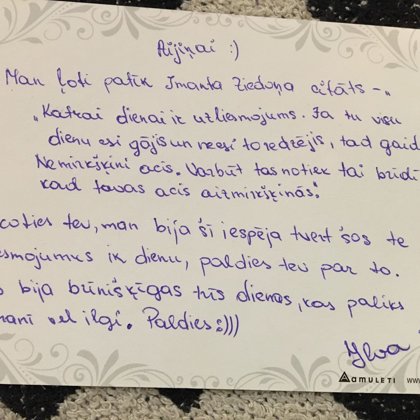 Aijiņai :)
Man ļoti patīk Imanta Ziedoņa citāts - „
„Katrai dienai ir uzliesmojums. Ja tu visu
dienu esi gājis un neesi to redzējis, tad gaidi
Nemirkšķini acis. Varbūt tas notiek tai brīdī
kad tavas acis aizmirkšķinās."
coties tev, man bija šī iespēja tvert šos te
esmojumus ik dienu, paldies tev par to.
s bija būnišķīgas trīs dienas, kas paliks
manī vēl ilgi. Paldies :)))
Ilva
AMULETI www.